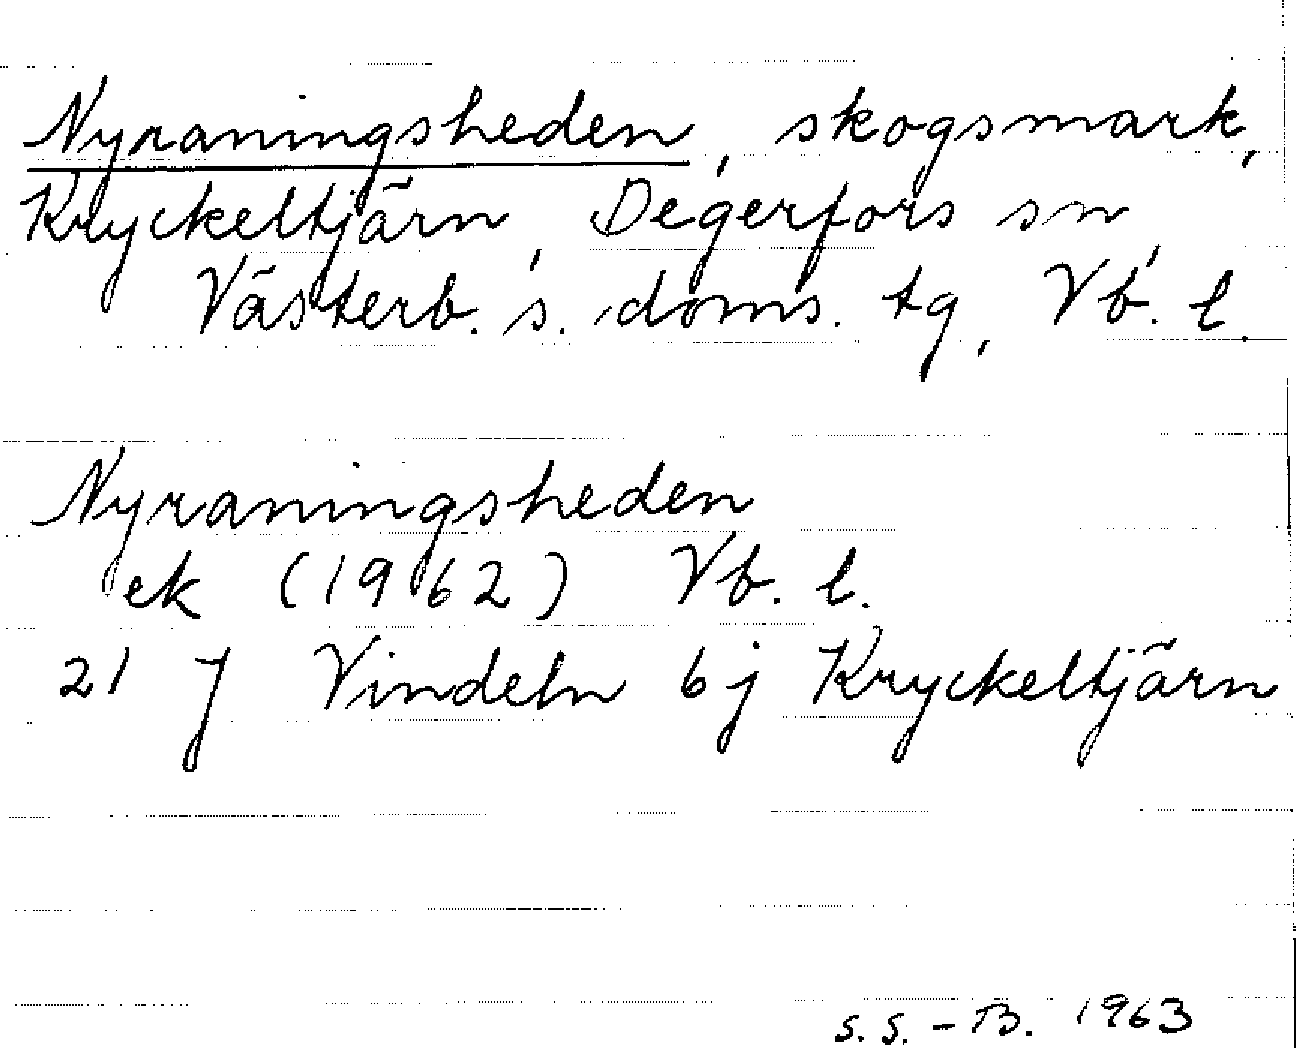 Nyraningsheden, skogsmark,
Kryckeltjärn, Degerfors sn,
Västerb. s. doms. tg, Vb. l.
Nyraningsheden
ek (1962) Vb. l.
21 J Vindeln bj Kryckeltjärn
S. S. - B. 1963